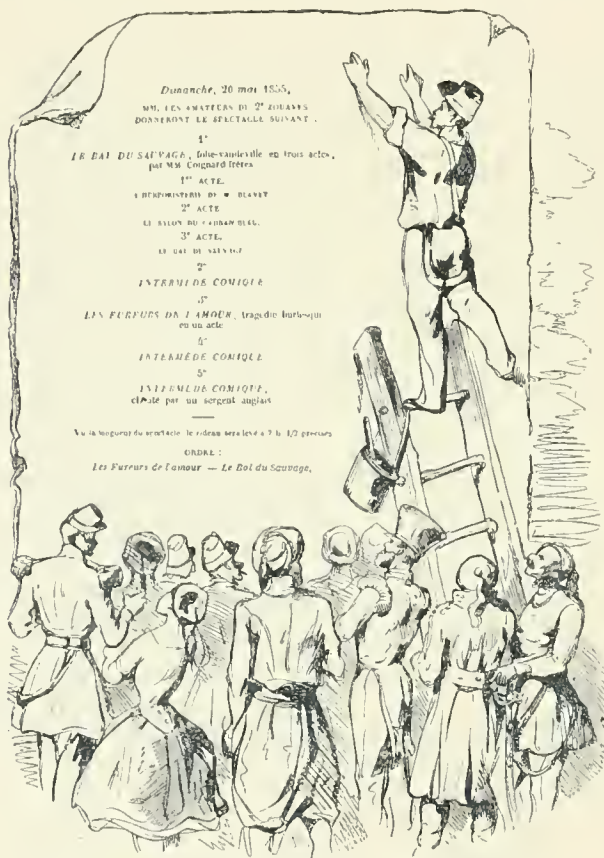 Dimanche, 20 mai 1855,
MM. LES AMATEURS DU 2e ZOUAVES
DONNERONT LE SPECTACLE SUIVANT :
1°
LE BAL DU SAUVAGE, folie-vaudeville en trois actes,
par MM. Coignard frères
1er ACTE.
DE M. BLAVET
2e ACTE
LE SALON DU
3e ACTE.
LE BAL DU SAUVAGE
2°
INTERMÈDE COMIQUE
3°
LES FUREURS DE L'AMOUR, tragédie burlesque
en un acte
4°
INTERMÈDE COMIQUE
5°
INTERMÈDE COMIQUE,
chanté par un sergent anglais
Vu la longueur du spectacle le rideau sera levé à 7 h. 1/2 précises
ORDRE :
Les Fureurs de l'amour — Le Bal du Sauvage,